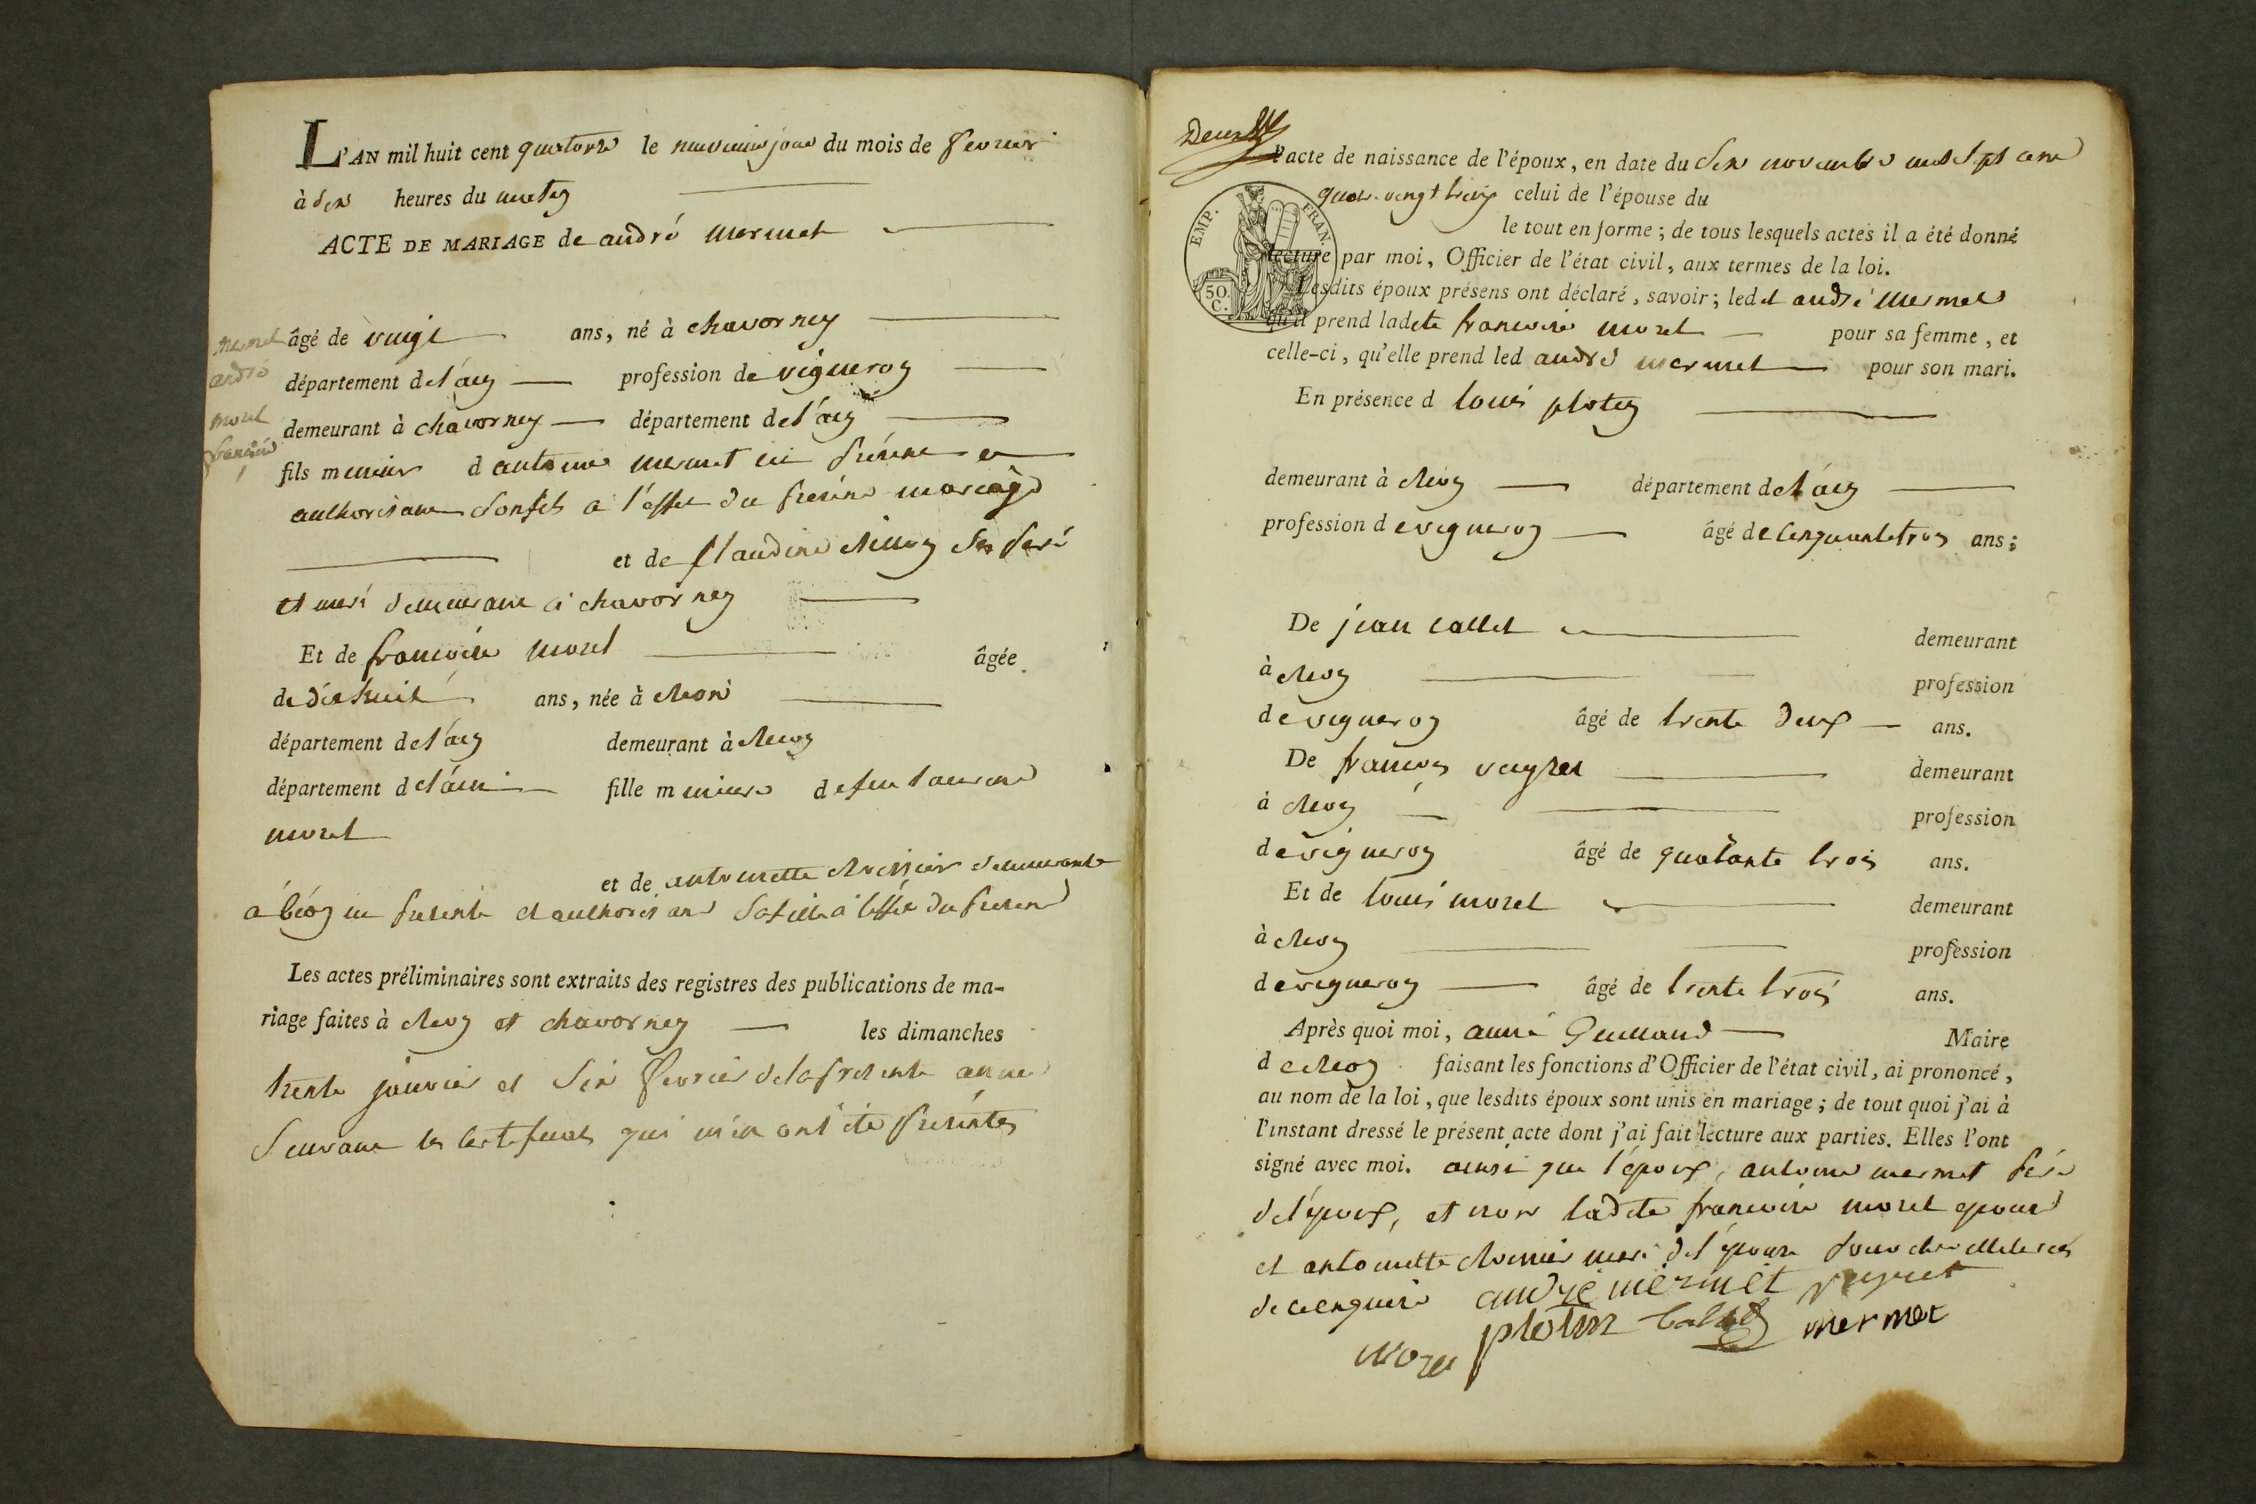 L'AN mil huit cent quatorze le neuvieme jour du mois de fevrier
à dix heures du matin
ACTE DE MARIAGE de andré mermet
mermet
andré
morel
francoise
âgé de vingt ans, né à chavorney
département de l'ain profession de vigneron
demeurant à chavorney département de l'ain
fils mineur d antoine mermet ici présent et
authorisant son fils a l'effet du présent mariage
et de Claudine
et mere demeurant à chavorney
Et de francoise morel âgée
de dixhuit ans, née à
département de l'ain demeurant à
département de l'ain fille mineure de feu laurent
morel
et de antoinette demeurante
à ici presente et authorisant sa fille à l'effet du present
Les actes préliminaires sont extraits des registres des publications de ma-
riage faites à et chavorney les dimanches
trente janvier et six fevrier de la presente annee
suivant les certificats qui m'en ont été présentés
Deux
l'acte de naissance de l'époux, en date du six novembre mil sept cent
quatre vingt treize celui de l'épouse du
le tout en forme ; de tous lesquels actes il a été donné
lecture par moi, Officier de l'état civil, aux termes de la loi.
EMP. FRAN.
50. C.
Lesdits époux présens ont déclaré, savoir ; led et andré mermet
qu'il prend ladete francoise morel pour sa femme, et
celle-ci, qu'elle prend led andré mermet pour son mari.
En présence d louis plotin
demeurant à département de l'ain
profession de vigneron âgé de cinquantetrois ans ;
De jean callet demeurant
à profession
de vigneron âgé de trente deux ans.
De francois veyret demeurant
à profession
de vigneron âgé de quarante trois ans.
Et de louis morel demeurant
à profession
de vigneron âgé de trente trois ans.
Après quoi moi, aimé Guilland Maire
de faisant les fonctions d'Officier de l'état civil, ai prononcé,
au nom de la loi, que lesdits époux sont unis en mariage ; de tout quoi j'ai à
l'instant dressé le présent acte dont j'ai fait lecture aux parties. Elles l'ont
signé avec moi. ainsi que l'époux, antoine mermet père
de l'époux, et non ladete francoise morel epouse
et antoinette mere de l'épouse pour etre illeterées
de ce enquises andre mermet veyret
plotin callet mermet
morel